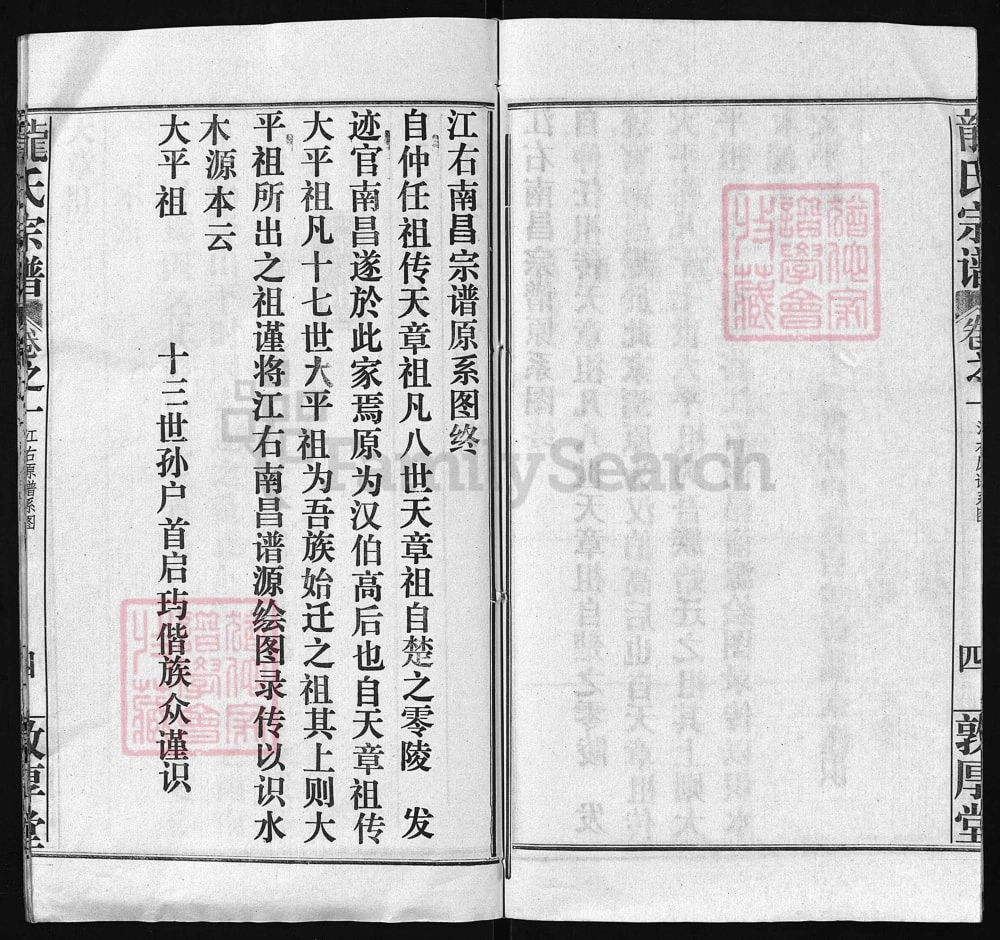 龍氏宗谱
卷之一
四
敦厚堂
江右南昌宗谱原系图终
自仲任祖传天章祖凡八世天章祖自楚之零陵 发
迹官南昌遂於此家焉原为汉伯高后也自天章祖传
大平祖凡十七世大平祖为吾族始迁之祖其上则大
平祖所出之祖谨将江右南昌谱源绘图录传以识水
木源本云
大平祖 十三世孙户首启玙偕族众谨识
龍氏宗譜
卷之一
江右原谱系图
四
敦厚堂
FamilySearch